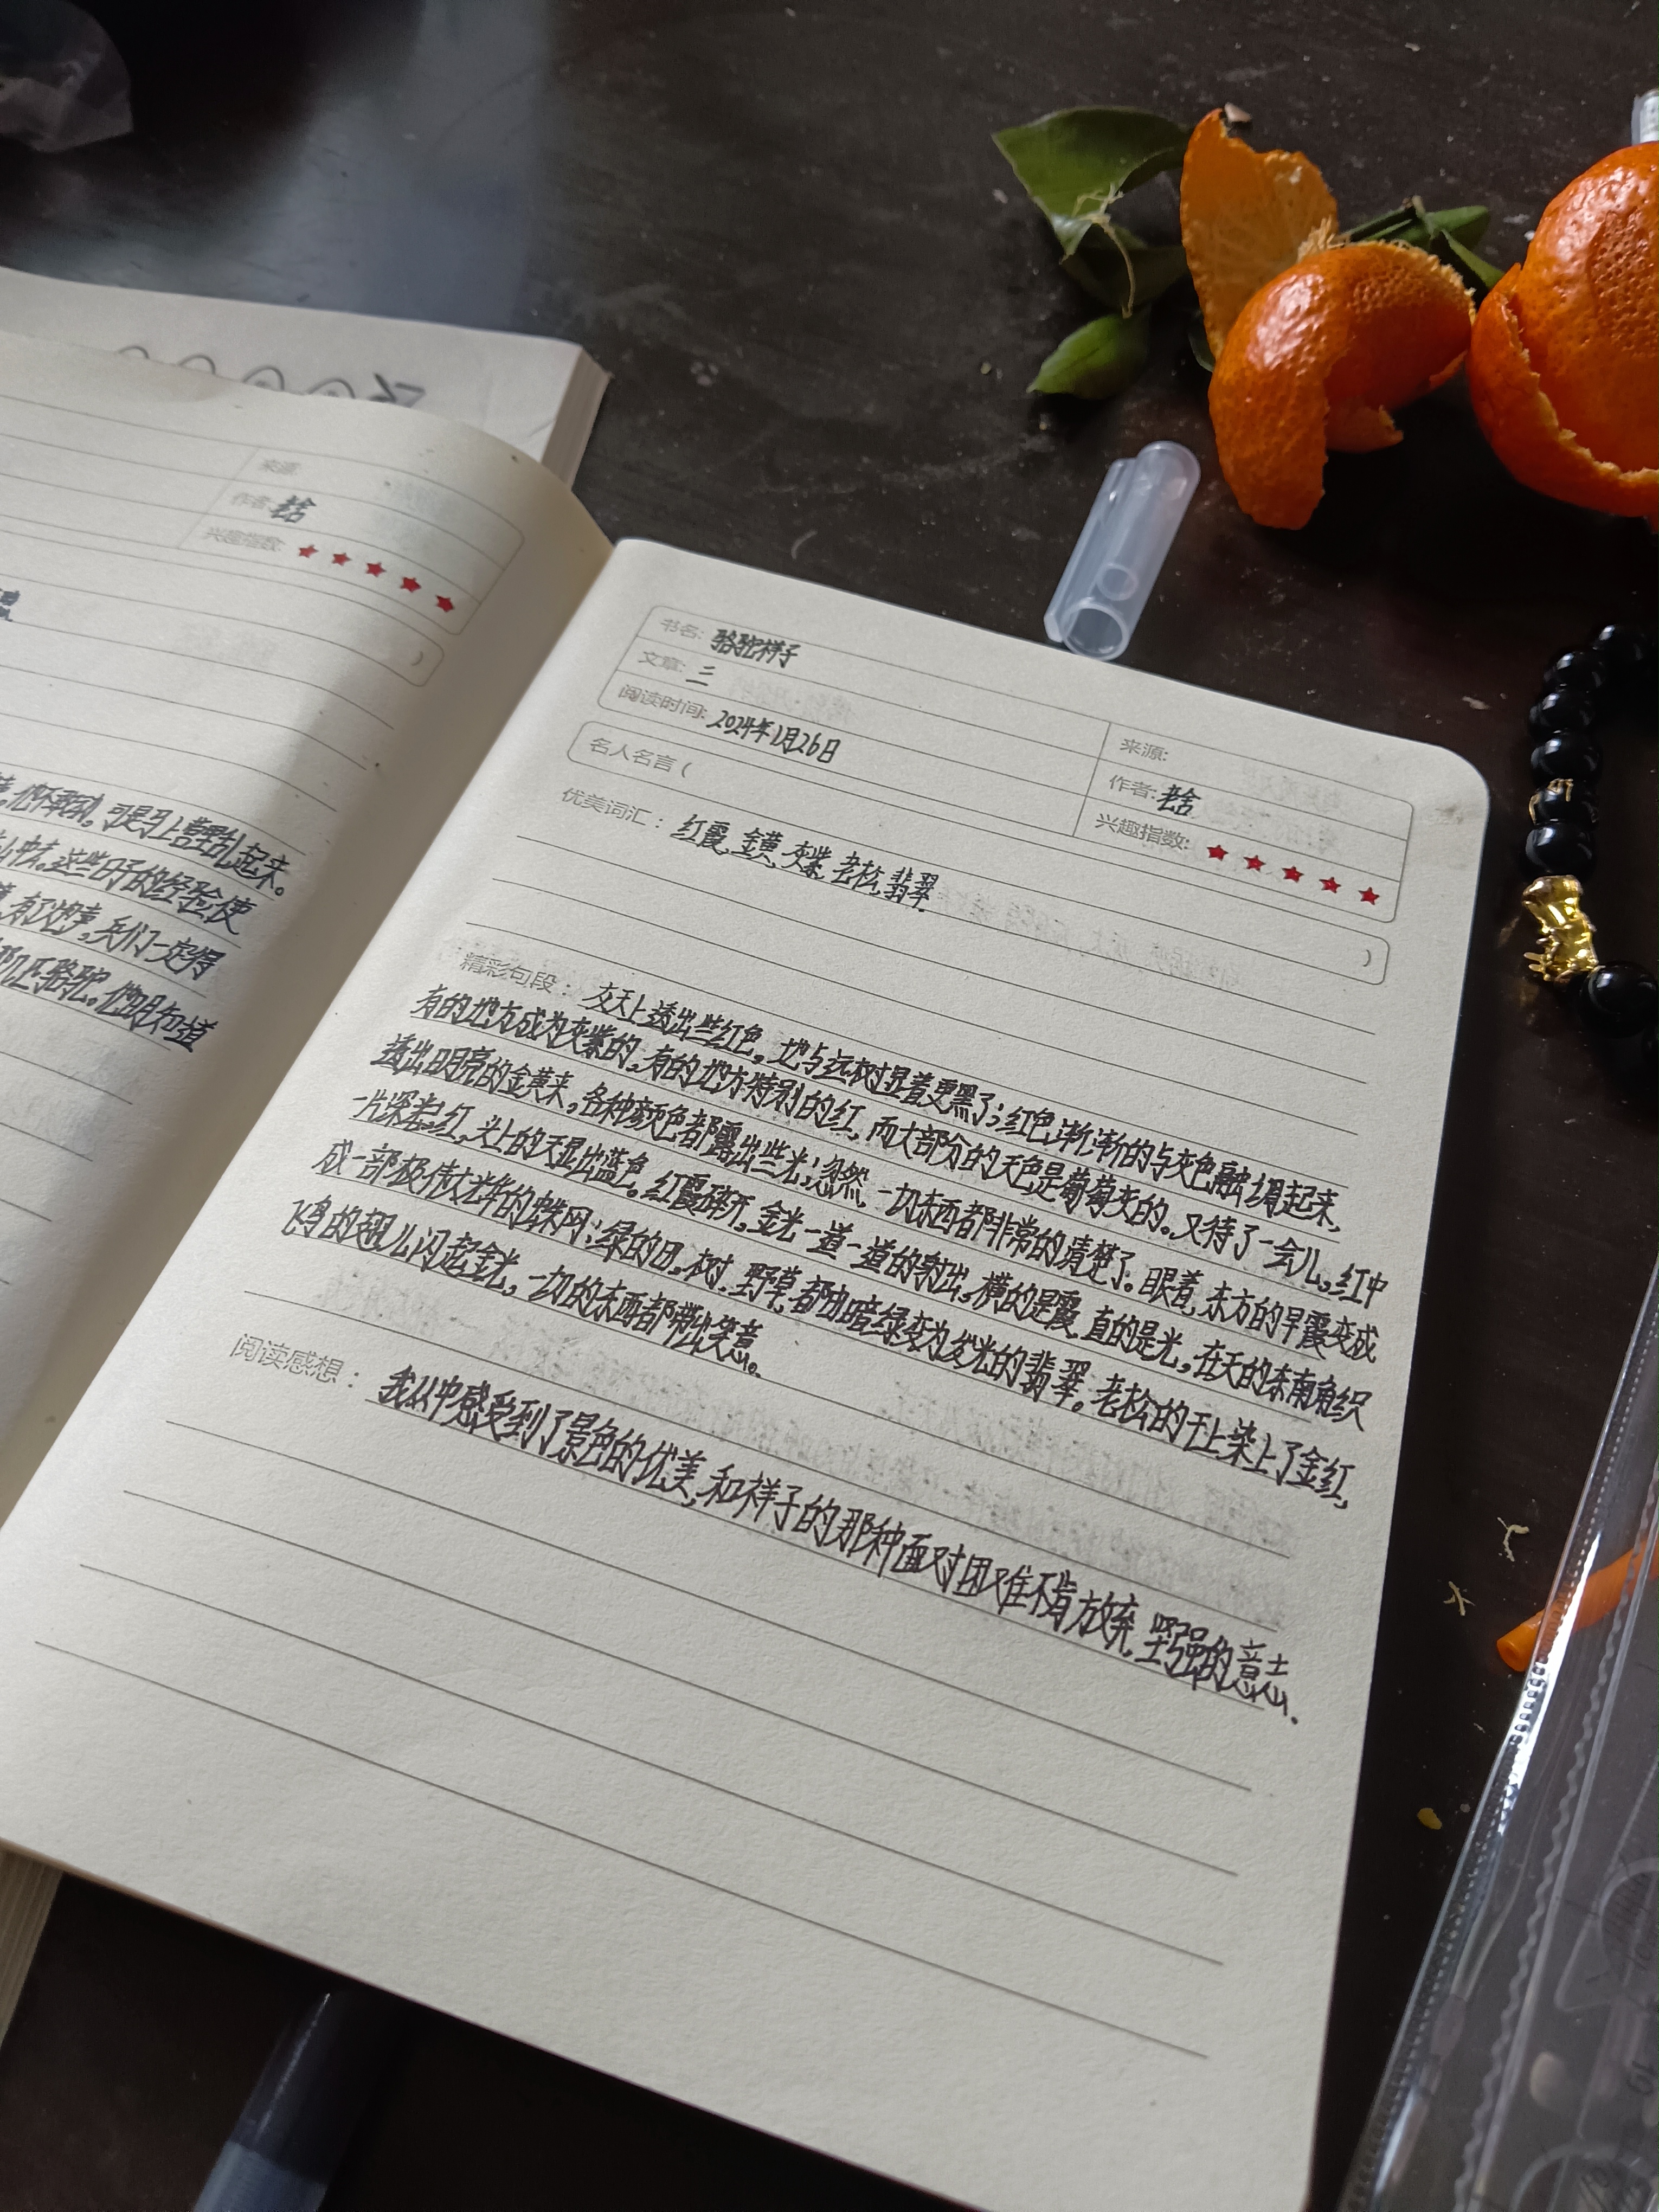 来源:
作者:老舍
兴趣指数:
)
他不敢动,可是马上营里乱起来。
山中去。这些日子的经验使
有了枪声,兵们一定得
那几匹骆驼。他明知道
书名:骆驼祥子
文章:三
阅读时间:2024年1月26日
来源:
作者:老舍
兴趣指数:
名人名言( )
优美词汇:红霞、金黄、灰紫、老松、翡翠
精彩句段:灰天上透出些红色,地与远树显着更黑了;红色渐渐的与灰色融调起来,
有的地方成为灰紫的,有的地方特别的红,而大部分的天色是葡萄灰的。又待了一会儿,红中
透出明亮的金黄来,各种颜色都露出些光;忽然,一切东西都非常的清楚了。眼着,东方的早霞变成
一片深红,头上的天显出蓝色。红霞碎开,金光一道一道的射出,横的是霞,直的是光,在天的东南角织
成一部极伟大光华的蛛网:绿的田,树,野草,都由暗绿变为发光的翡翠。老松的干上染上了金红,
飞鸟的翅儿闪起金光,一切的东西都带出笑意。
阅读感想:我从中感受到了景色的优美,和祥子的那种面对困难不肯放弃,坚强的意志.